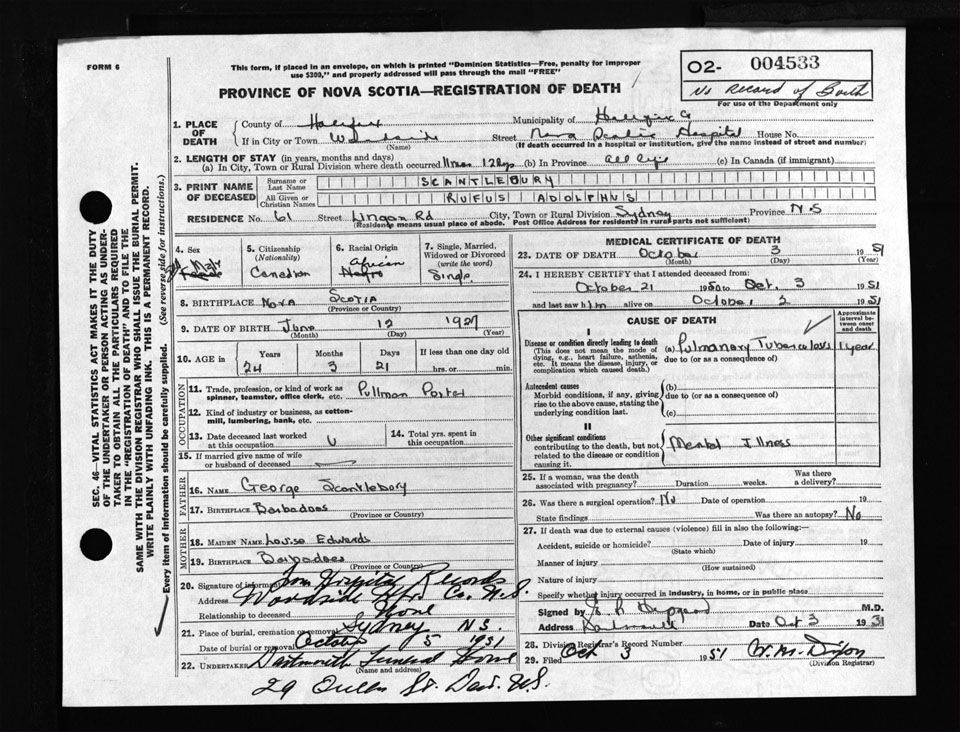 FORM 6
This form, if placed in an envelope, on which is printed "Dominion Statistics—Free, penalty for improper
use $300," and properly addressed will pass through the mail "FREE"
02- 004533
No Record of Birth
For use of the Department only
PROVINCE OF NOVA SCOTIA—REGISTRATION OF DEATH
1. PLACE OF DEATH
County of Halifax Municipality of Halifax Co
If in City or Town Woodside Street Nova Scotia Hospital House No.
(Name) (If death occurred in a hospital or institution, give the name instead of street and number)
2. LENGTH OF STAY (in years, months and days)
(a) In City, Town or Rural Division where death occurred 11 mos 12 dys (b) In Province all life (c) In Canada (if immigrant)
3. PRINT NAME OF DECEASED
Surname or Last Name SCANTLEBURY
All Given or Christian Names RUFUS ADOLPHUS
RESIDENCE No. 61 Street Lingan Rd City, Town or Rural Division Sydney Province N.S
(Residence means usual place of abode. Post Office Address for residents in rural parts not sufficient)
4. Sex Male
5. Citizenship (Nationality) Canadian
6. Racial Origin African Negro
7. Single, Married, Widowed or Divorced (write the word) Single
8. BIRTHPLACE Nova Scotia
(Province or Country)
9. DATE OF BIRTH June 12 1927
(Month) (Day) (Year)
10. AGE in Years Months Days If less than one day old
24 3 21 hrs. or min.
OCCUPATION
11. Trade, profession, or kind of work as
spinner, teamster, office clerk, etc. Pullman Porter
12. Kind of industry or business, as cotton-
mill, lumbering, bank, etc.
13. Date deceased last worked
at this occupation U
14. Total yrs. spent in
this occupation
15. If married give name of wife
or husband of deceased
FATHER
16. NAME George Scantlebury
17. BIRTHPLACE Barbadoes
(Province or Country)
MOTHER
18. MAIDEN NAME Louise Edwards
19. BIRTHPLACE Barbadoes
(Province or Country)
20. Signature of informant from Hospital Records
Address Woodside Hfx Co. N.S.
Relationship to deceased None
21. Place of burial, cremation or removal Sydney N.S.
Date of burial or removal October 5 1951
22. UNDERTAKER Dartmouth Funeral Home
(Name and address)
29 Queen St. Dart. N.S.
MEDICAL CERTIFICATE OF DEATH
23. DATE OF DEATH October 3 1951
(Month) (Day) (Year)
24. I HEREBY CERTIFY that I attended deceased from
October 21 1950 to Oct. 3 1951
and last saw him alive on October 2 1951
CAUSE OF DEATH
Approximate interval between onset and death
I
Disease or condition directly leading to death
(This does not mean the mode of dying, e.g., heart failure, asthenia, etc. It means the disease, injury, or complication which caused death.)
(a) Pulmonary Tuberculosis 1 year
due to (or as a consequence of)
Antecedent causes
Morbid conditions, if any, giving rise to the above cause, stating the underlying condition last.
(b)
due to (or as a consequence of)
(c)
II
Other significant conditions
contributing to the death, but not related to the disease or condition causing it.
Mental Illness
25. If a woman, was the death
associated with pregnancy? Duration weeks. Was there a delivery?
26. Was there a surgical operation? No Date of operation 19
State findings Was there an autopsy? No
27. If death was due to external causes (violence) fill in also the following:—
Accident, suicide or homicide? Date of injury 19
(State which)
Manner of injury
(How sustained)
Nature of injury
Specify whether injury occurred in industry, in home, or in public place
Signed by M.D.
Address Dartmouth Date Oct 3 1951
28. Division Registrar's Record Number
29. Filed Oct 3 1951 W. M. Dixon
(Division Registrar)
SEC. 46—VITAL STATISTICS ACT MAKES IT THE DUTY
OF THE UNDERTAKER OR PERSON ACTING AS UNDER-
TAKER TO OBTAIN ALL THE PARTICULARS REQUIRED
IN THE "REGISTRATION OF DEATH" AND TO FILE THE
SAME WITH THE DIVISION REGISTRAR WHO SHALL ISSUE THE BURIAL PERMIT.
WRITE PLAINLY WITH UNFADING INK. THIS IS A PERMANENT RECORD.
Every item of information should be carefully supplied. (See reverse side for instructions.)